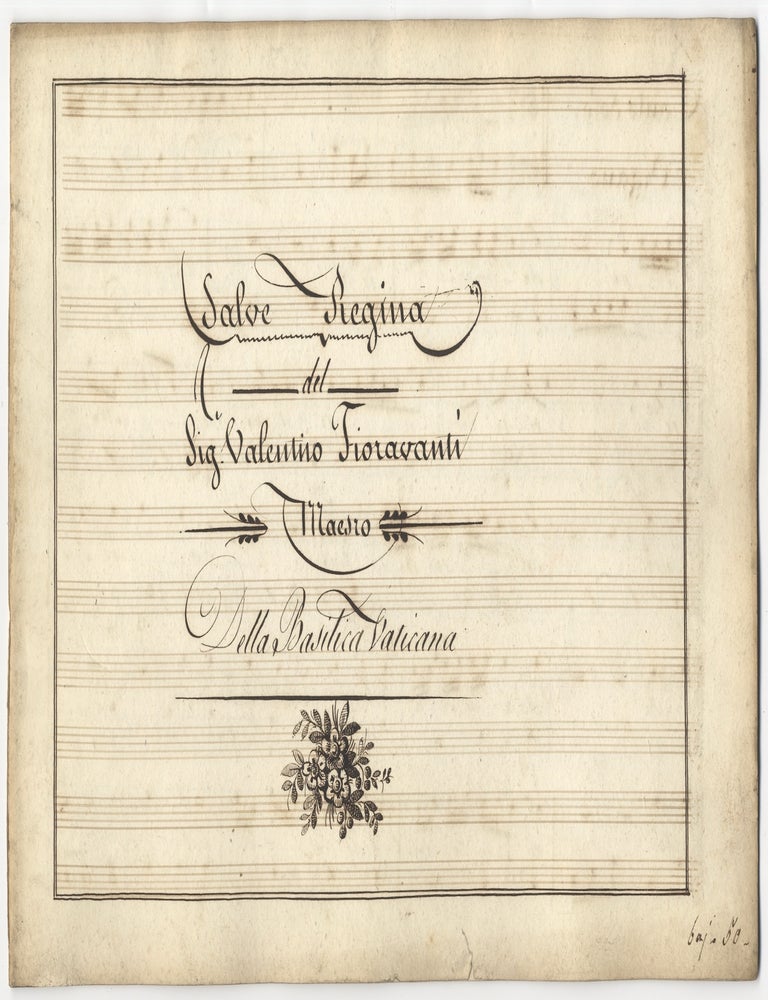 Salve Regina
del
Sig.r Valentino Fioravanti
Maesro
Della Basilica Vaticana
baj. 50